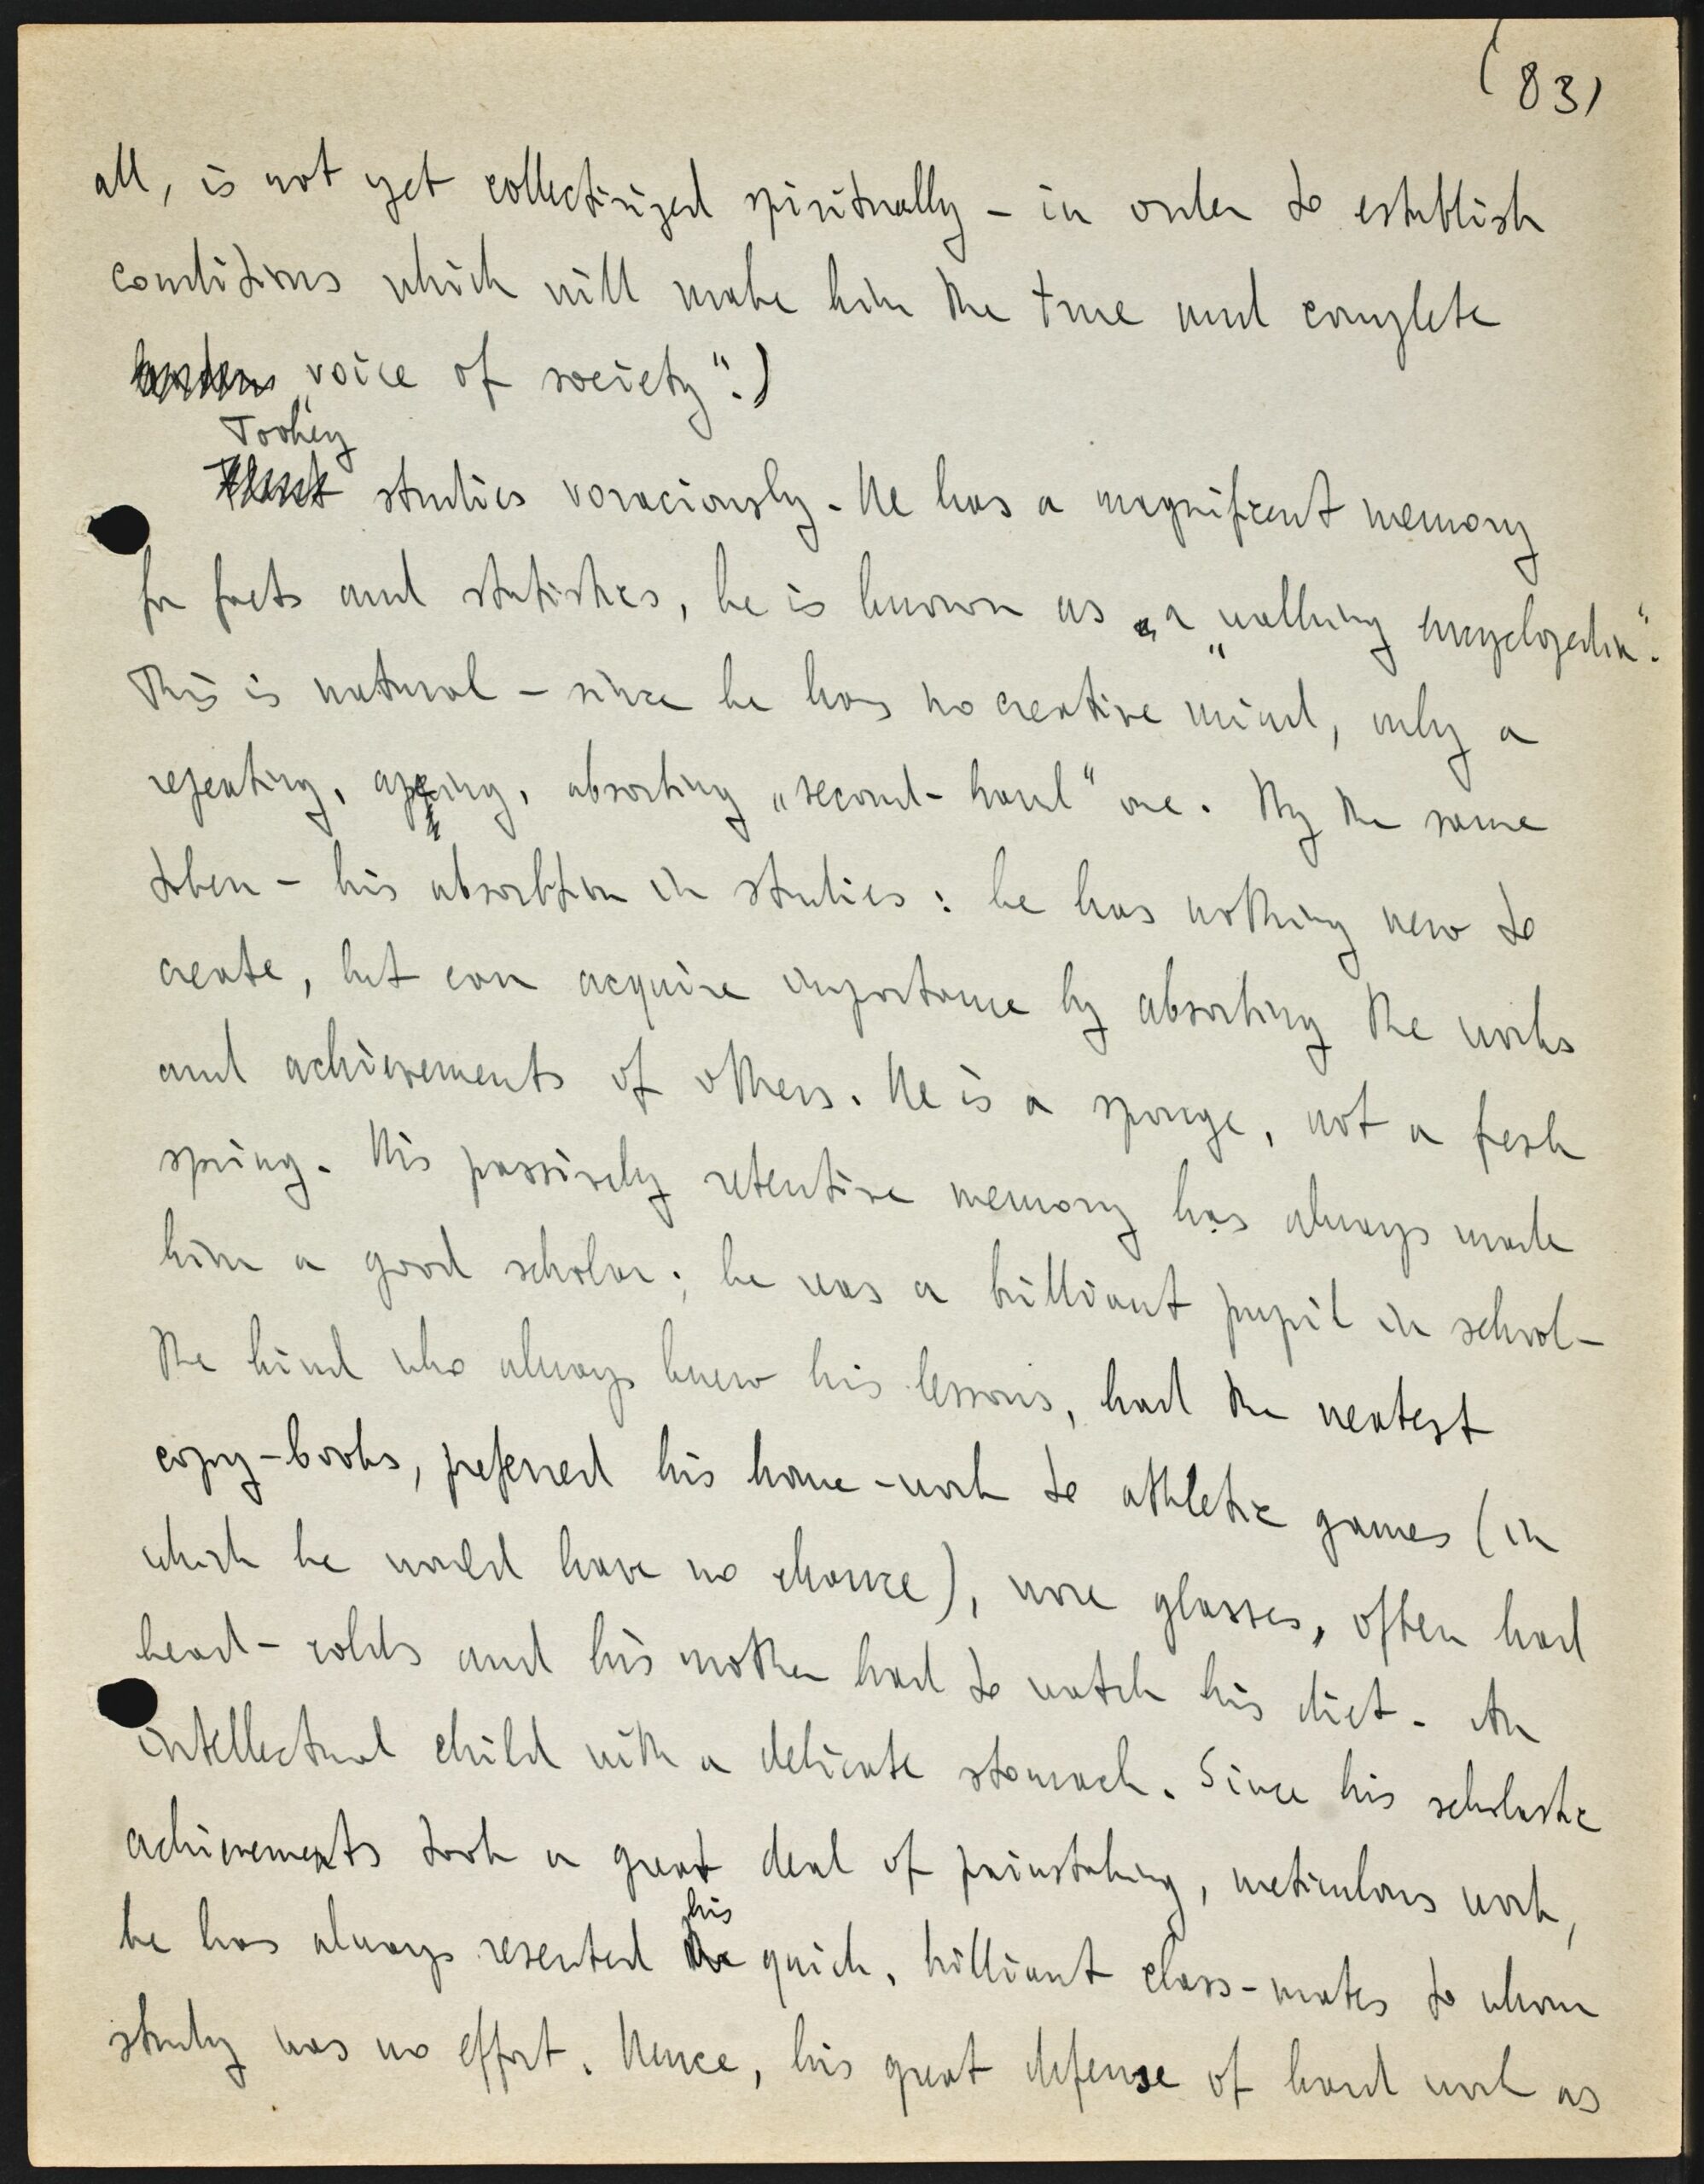 (83)
all, is not yet collectivized spiritually - in order to establish
conditions which will make him the true and complete
„voice of society".)
Toohey
studies voraciously. He has a magnificent memory
for facts and statistics, he is known as „a „walking encyclopedia".
This is natural - since he has no creative mind, only a
repeating, aping, absorbing „second-hand" one. By the same
token - his absorbtion in studies: he has nothing new to
create, but can acquire importance by absorbing the works
and achievements of others. He is a sponge, not a fresh
spring. His passively retentive memory has always made
him a good scholar; he was a brilliant pupil in school -
the kind who always knew his lessons, had the neatest
copy-books, preferred his home-work to athletic games (in
which he would have no chance), wore glasses, often had
head-colds and his mother had to watch his diet. An
intellectual child with a delicate stomach. Since his scholastic
achievements took a great deal of painstaking, meticulous work,
his
he has always resented the quick, brilliant class-mates to whom
study was no effort. Hence, his great defense of hard work as